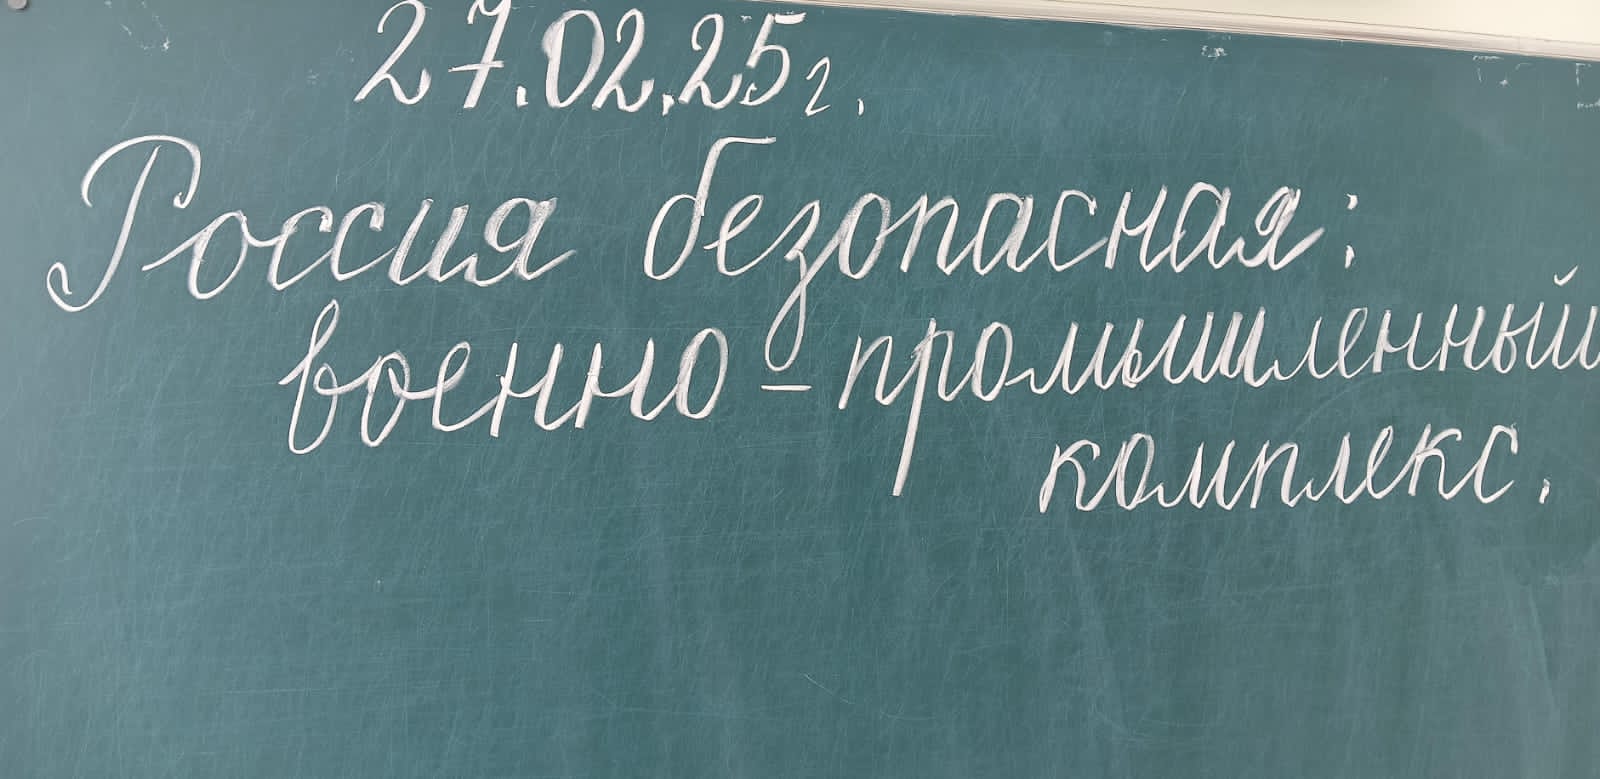 27.02.25г.
Россия безопасная:
военно-промышленный
комплекс.